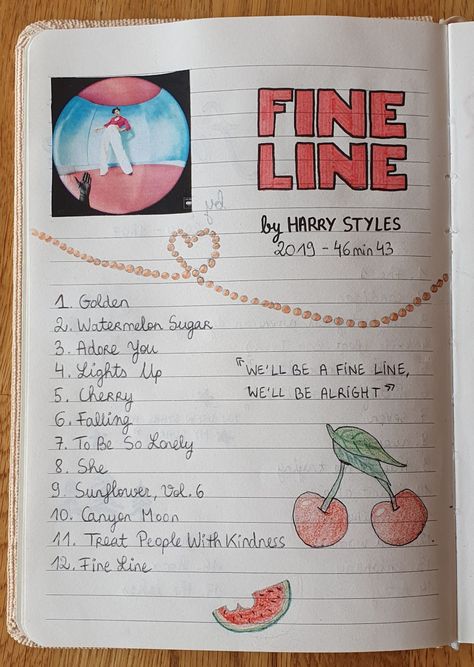 FINE
LINE
by HARRY STYLES
2019 - 46 min 43
1. Golden
2. Watermelon Sugar
3. Adore You
4. Lights Up
5. Cherry
6. Falling
7. To Be So Lonely
8. She
9. Sunflower, Vol. 6
10. Canyon Moon
11. Treat People With Kindness
12. Fine Line
"WE'LL BE A FINE LINE,
WE'LL BE ALRIGHT"